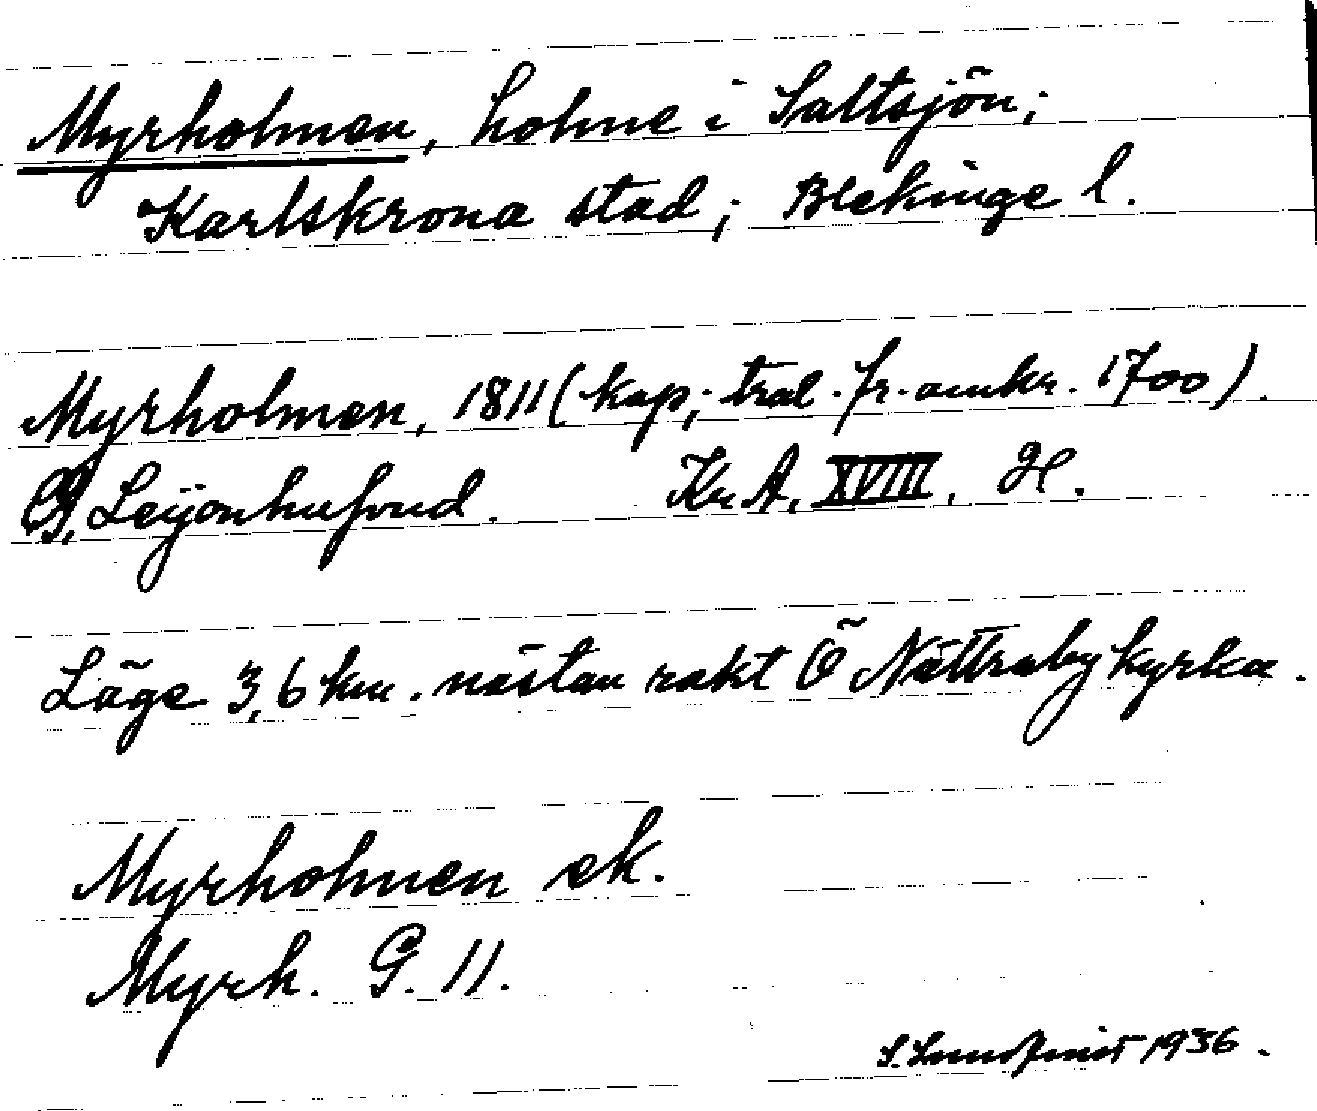 Myrholmen, holme i Saltsjön;
Karlskrona stad; Blekinge l.
Myrholmen, 1811 (kop; tral. fr. omkr. 1700).
G. Leijonhufvud. Kr. A. XVIII, H.
Läge 3,6 km. nästan rakt Ö Nättraby kyrka.
Myrholmen ek.
Myrh. G. 11.
S. Lundqvist 1936.